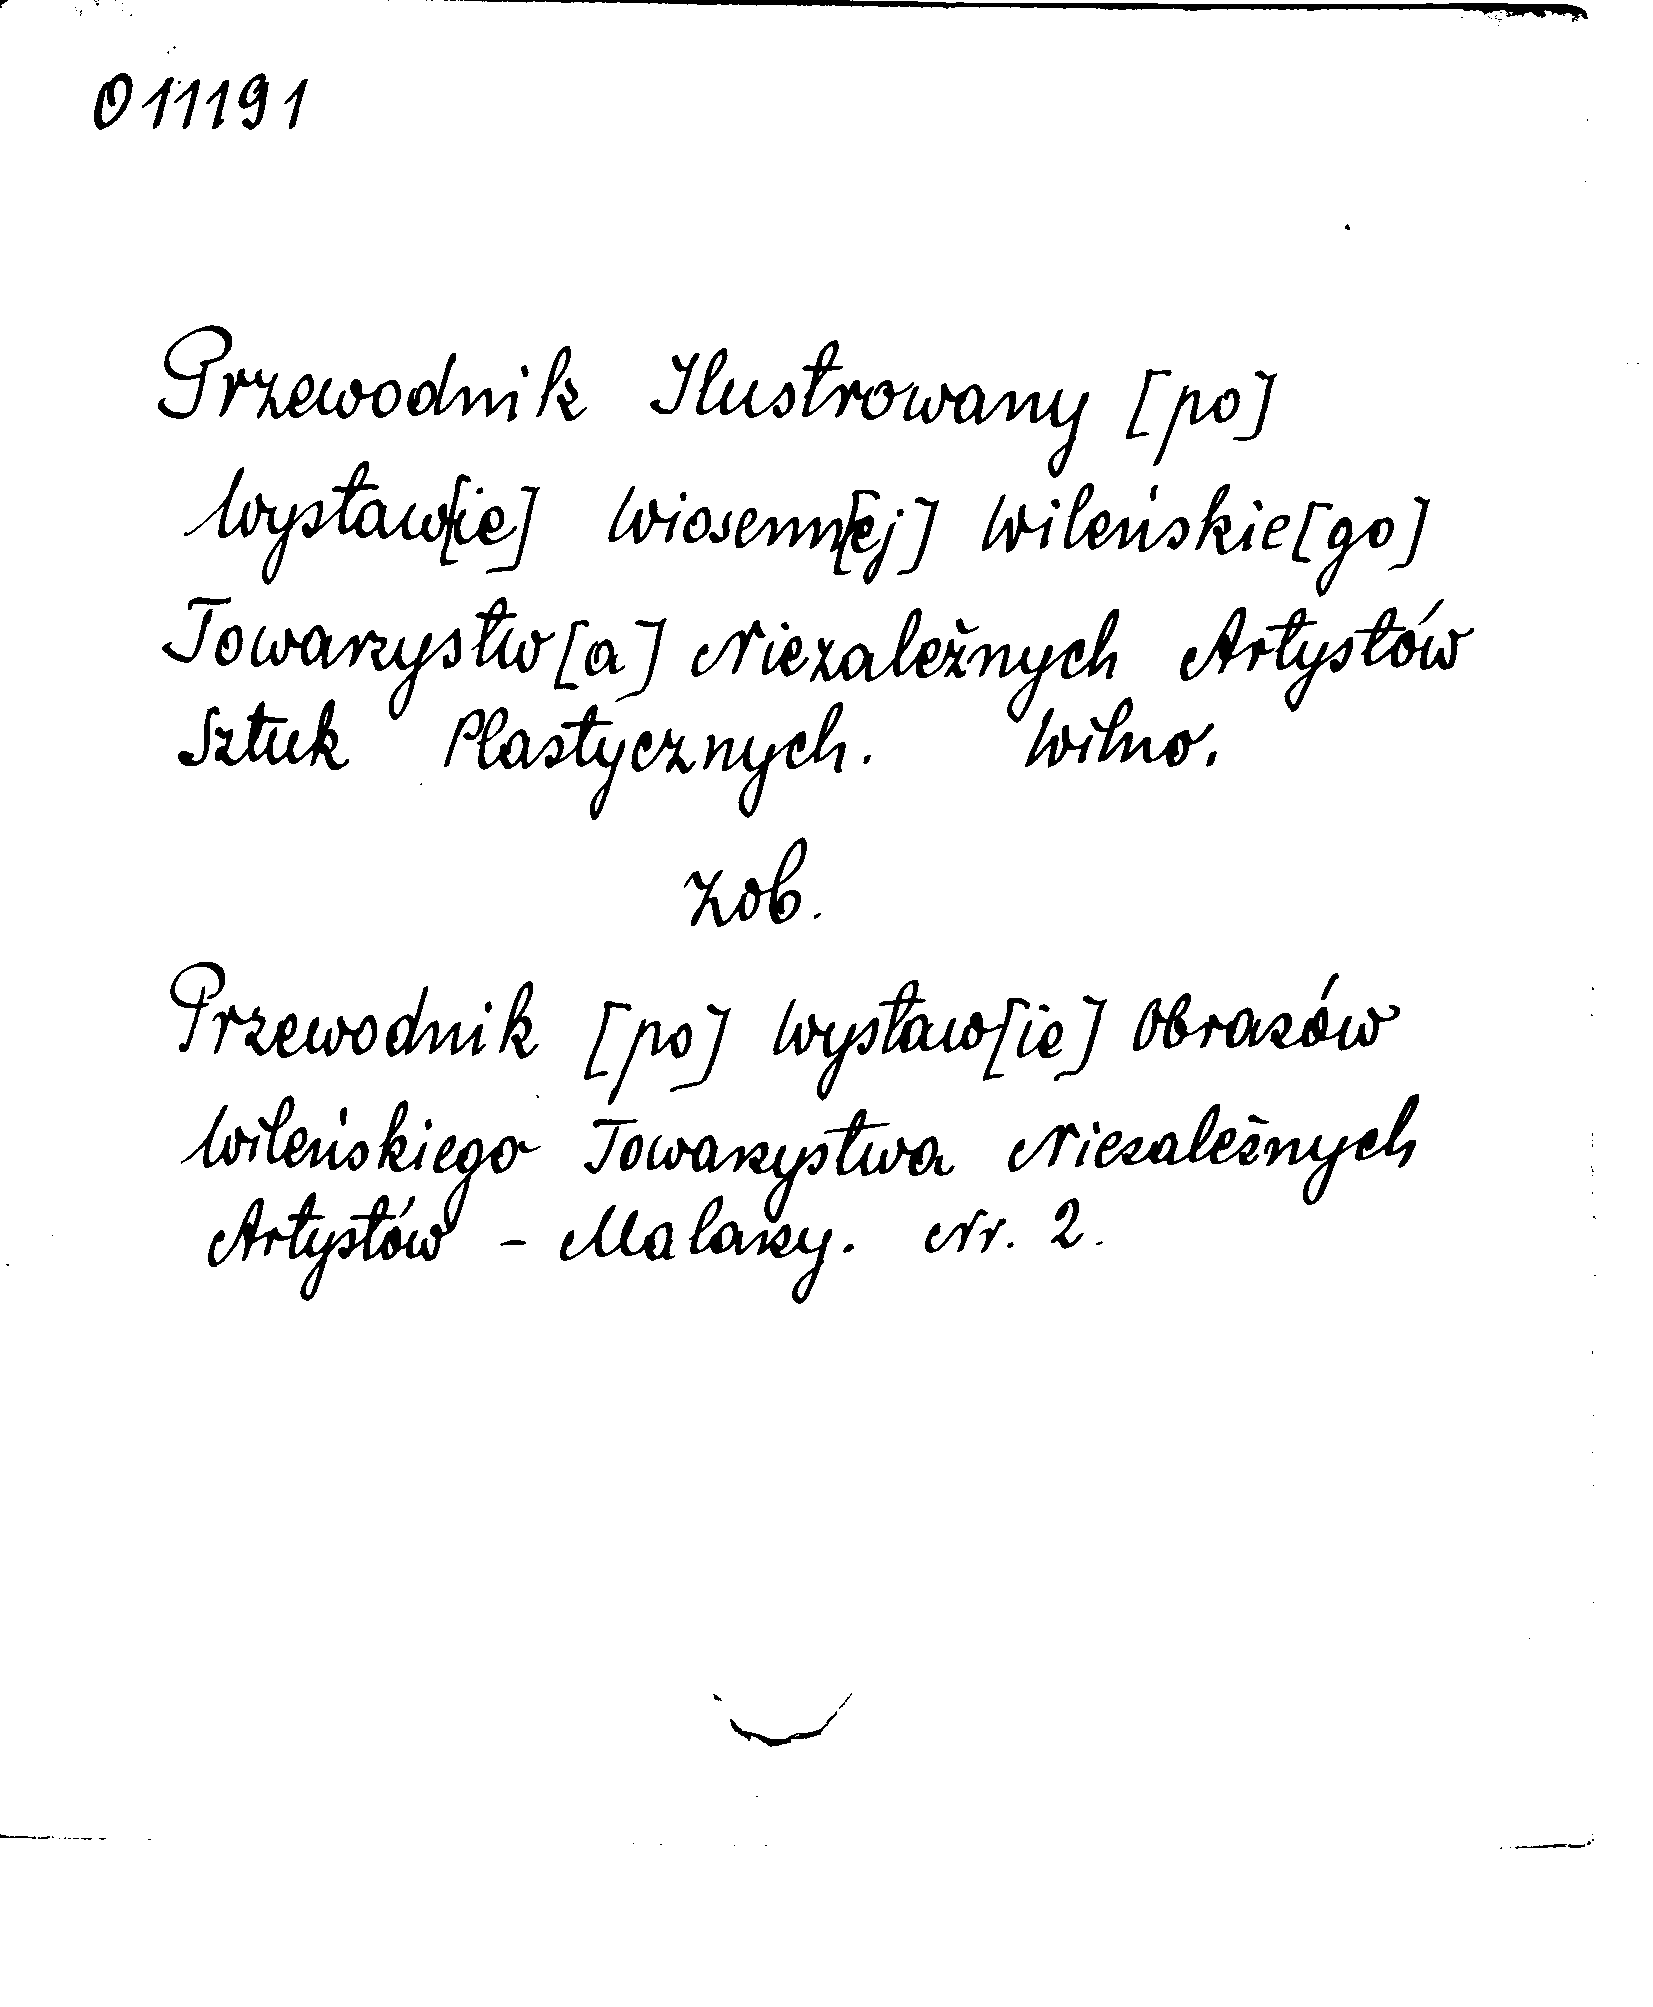 011191
Przewodnik Ilustrowany [po]
Wystaw[ie] Wiosenn[ej] Wileńskie[go]
Towarzystw[a] Niezależnych Artystów
Sztuk Plastycznych. Wilno.
Zob.
Przewodnik [po] Wystaw[ie] Obrazów
Wileńskiego Towarzystwa Niezależnych
Artystów - Malarzy. Nr. 2.